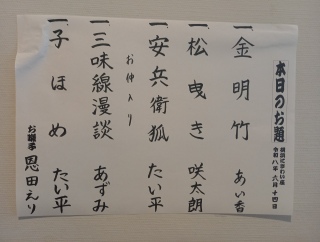 本日のお題
令和八年六月十四日
一、金明竹 あい香
一、松曳き 咲太郎
お仲入り
一、安兵衛狐 たい平
一、三味線漫談 あずみ
一、子ほめ たい平
お囃子 恩田えり